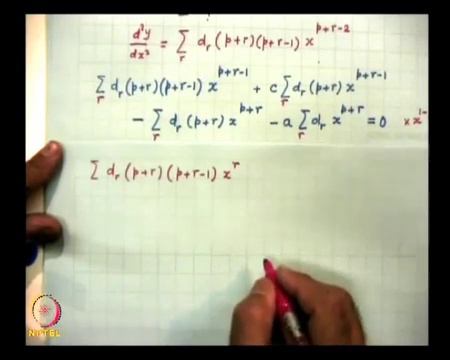 d²y/dx² = ∑_r d_r (p+r)(p+r-1) x^{p+r-2}
∑_r d_r (p+r)(p+r-1) x^{p+r-1} + c ∑_r d_r (p+r) x^{p+r-1}
- ∑_r d_r (p+r) x^{p+r} - a ∑_r d_r x^{p+r} = 0 × x^{1-
∑ d_r (p+r) (p+r-1) x^r
NPTEL